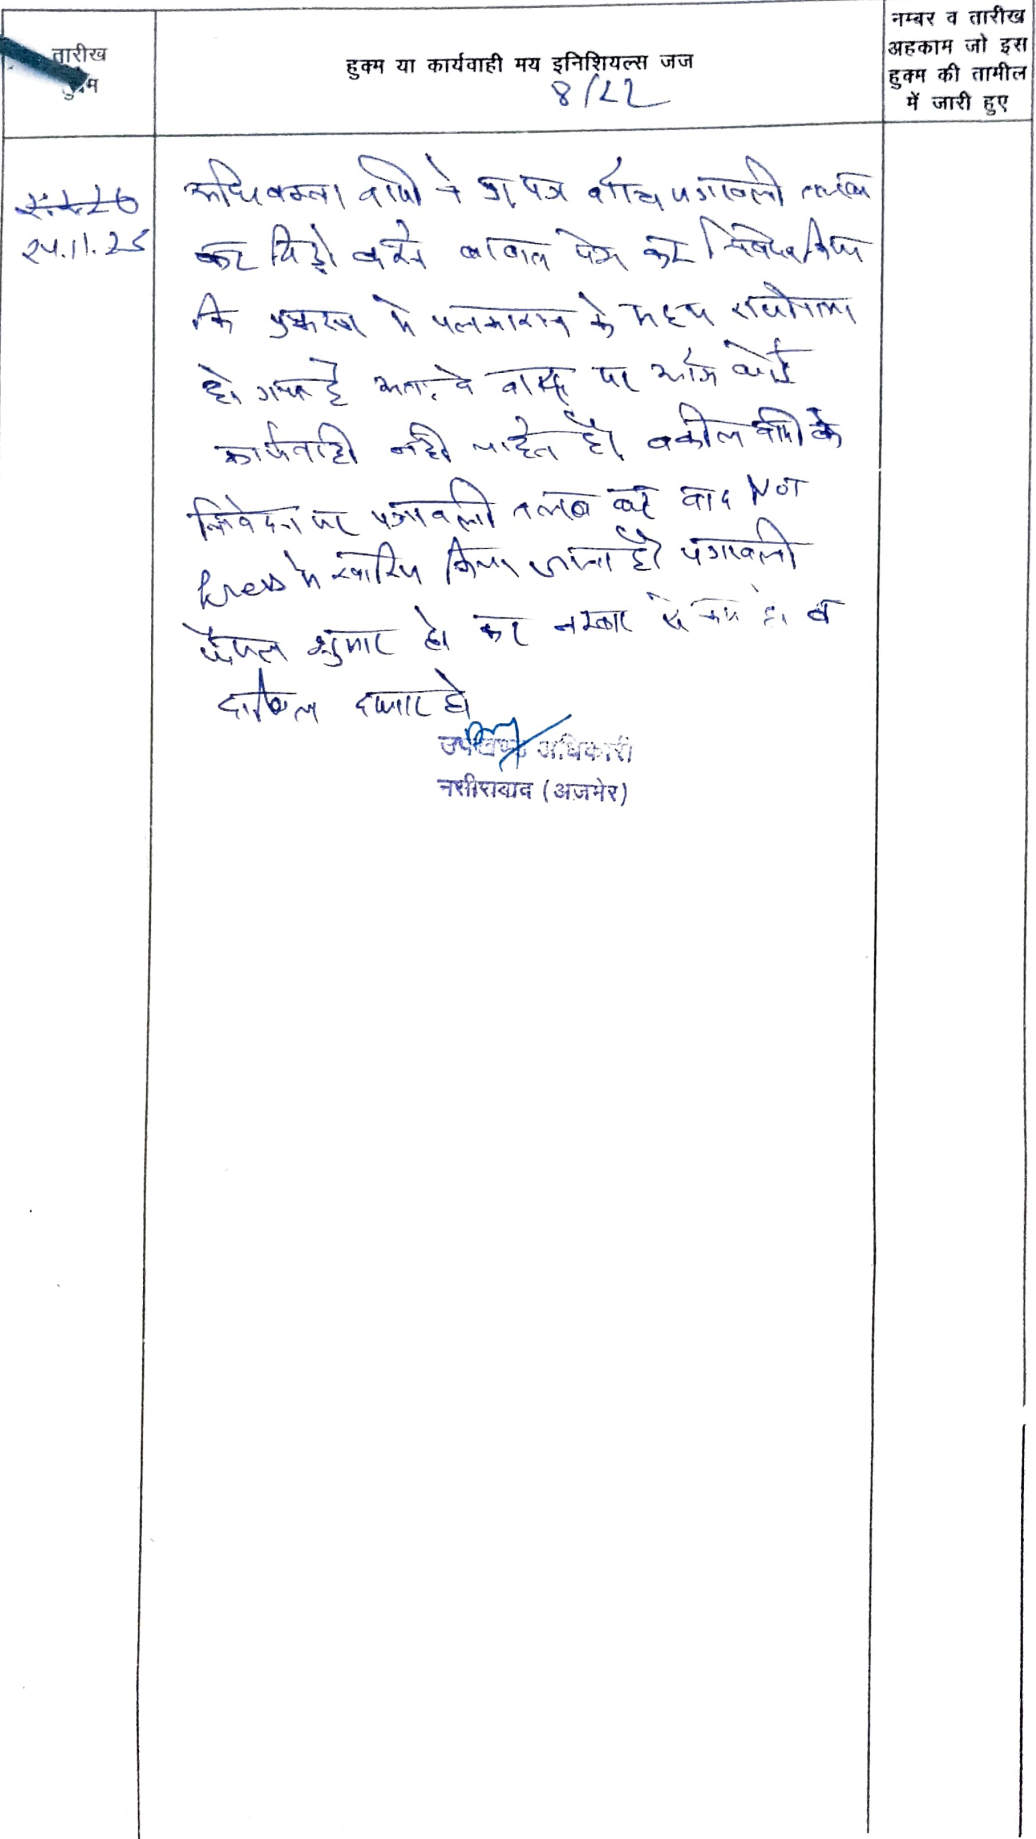 तारीख
हुक्म
हुक्म या कार्यवाही मय इनिशियल्स जज
8/22
नम्बर व तारीख
अहकाम जो इस
हुक्म की तामील
में जारी हुए
24.11.25
अधिवक्ता वादी ने प्रा. पत्र पत्रावली तलब
कर विड्रो करने पेश कर निवेदन किया
कि प्रकरण में पक्षकारान के मध्य राजीनामा
हो गया है अतः वे वाद पर आगे कोई
कार्यवाही नहीं चाहते है। वकील वादी के
निवेदन पर पत्रावली तलब कर वाद Not
Press में खारिज किया जाता है। पत्रावली
फैसल शुमार हो कर नम्बर से कम हो व
दाखिल दफ्तर हो
उपखण्ड अधिकारी
नसीराबाद (अजमेर)